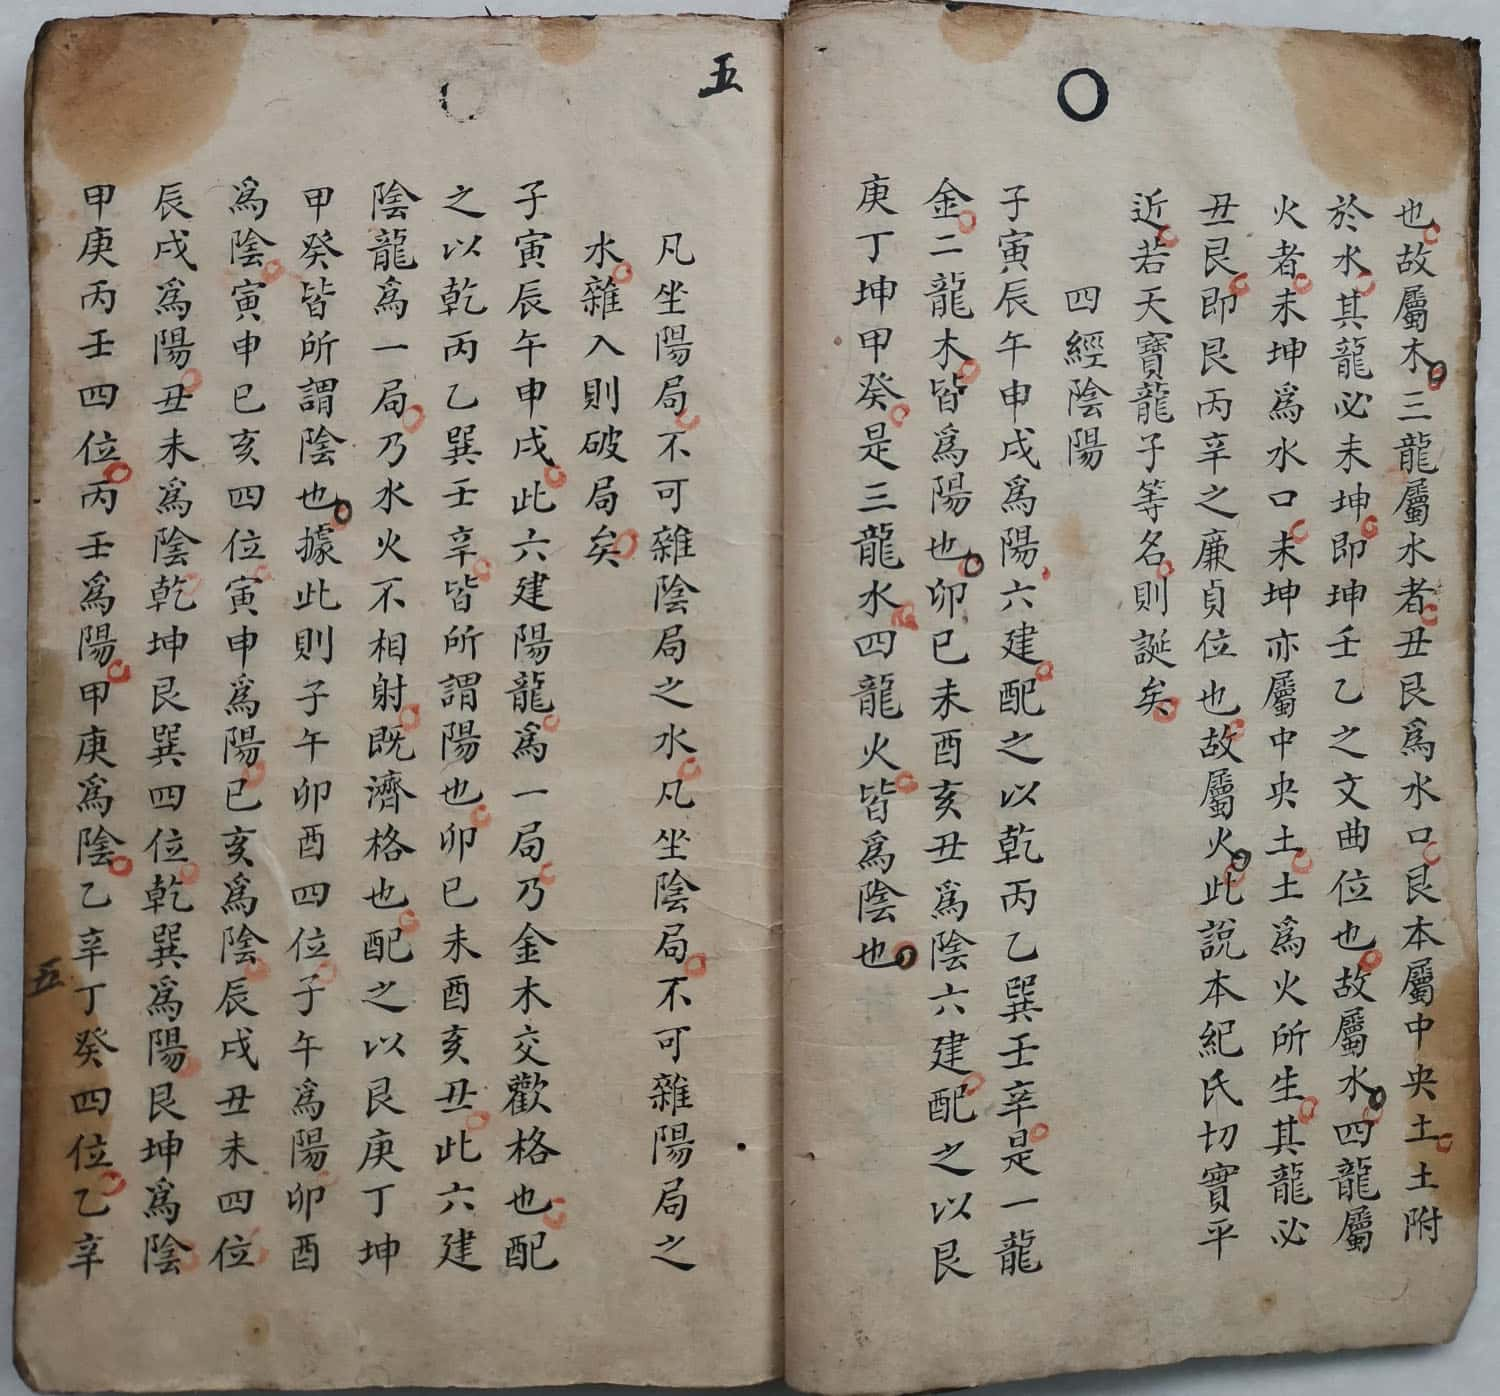 也故屬木三龍屬水者丑艮爲水口艮本屬中央土土附
於水其龍必未坤即坤壬乙之文曲位也故屬水四龍屬
火者未坤爲水口未坤亦屬中央土土爲火所生其龍必
丑艮即艮丙辛之廉貞位也故屬火此説本紀氏切實平
近若天寶龍子等名則誕矣
四經陰陽
子寅辰午申戌爲陽六建配之以乾丙乙巽壬辛是一龍
金二龍木皆爲陽也卯巳未酉亥丑爲陰六建配之以艮
庚丁坤甲癸是三龍水四龍火皆爲陰也
五
凡坐陽局不可雜陰局之水凡坐陰局不可雜陽局之
水雜入則破局矣
子寅辰午申戌此六建陽龍爲一局乃金木交歡格也配
之以乾丙乙巽壬辛皆所謂陽也卯巳未酉亥丑此六建
陰龍爲一局乃水火不相射既濟格也配之以艮庚丁坤
甲癸皆所謂陰也據此則子午卯酉四位子午爲陽卯酉
爲陰寅申巳亥四位寅申爲陽巳亥爲陰辰戌丑未四位
辰戌爲陽丑未爲陰乾坤艮巽四位乾巽爲陽艮坤爲陰
甲庚丙壬四位丙壬爲陽甲庚爲陰乙辛丁癸四位乙辛
五